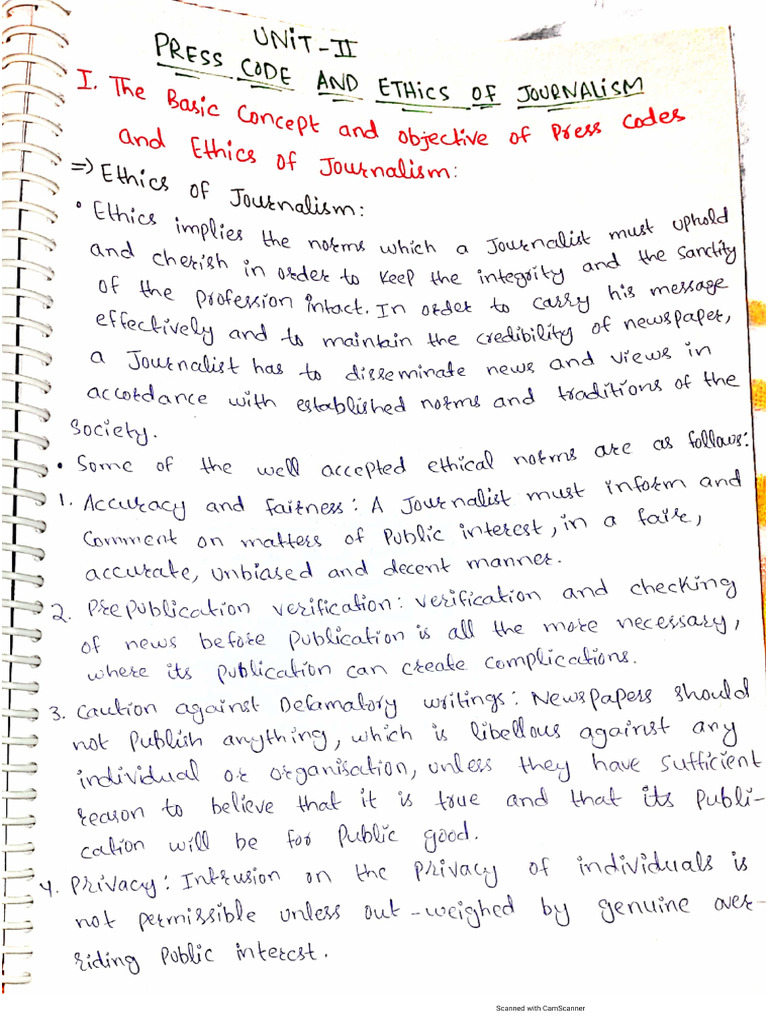 UNIT-II
PRESS CODE AND ETHICS OF JOURNALISM
I. The Basic Concept and objective of Press Codes
and Ethics of Journalism:
=> Ethics of Journalism:
• Ethics implies the norms which a Journalist must uphold
and cherish in order to keep the integrity and the sanctity
of the profession intact. In order to carry his message
effectively and to maintain the credibility of newspaper,
a Journalist has to disseminate news and views in
accordance with established norms and traditions of the
society.
• Some of the well accepted ethical norms are as follows:
1. Accuracy and fairness: A Journalist must inform and
comment on matters of Public interest, in a fair,
accurate, unbiased and decent manner.
2. Prepublication verification: verification and checking
of news before publication is all the more necessary,
where its publication can create complications.
3. Caution against Defamatory writings: Newspapers should
not publish anything, which is libellous against any
individual or organisation, unless they have sufficient
reason to believe that it is true and that its publi-
cation will be for Public good.
4. Privacy: Intrusion on the privacy of individuals is
not permissible unless out-weighed by genuine over-
riding Public interest.
Scanned with CamScanner